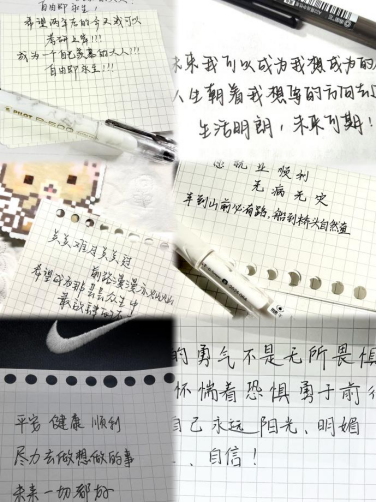 自由即永生！
希望两年后的今天我可以
考研上岸!!!
成为一个自己羡慕的大人!!!
自由即永生!!!
未来我可以成为我想成为的
人生朝着我想要的方向走
生活明朗，未来可期！
就业顺利
无病无灾
车到山前必有路，船到桥头自然直
关关难过关关过
前路漫漫亦
希望成为那芸芸众生中
最
平安 健康 顺利
尽力去做想做的事
未来一切都好
的勇气不是无所畏惧
怀揣着恐惧勇于前行
自己永远阳光、明媚
、自信！